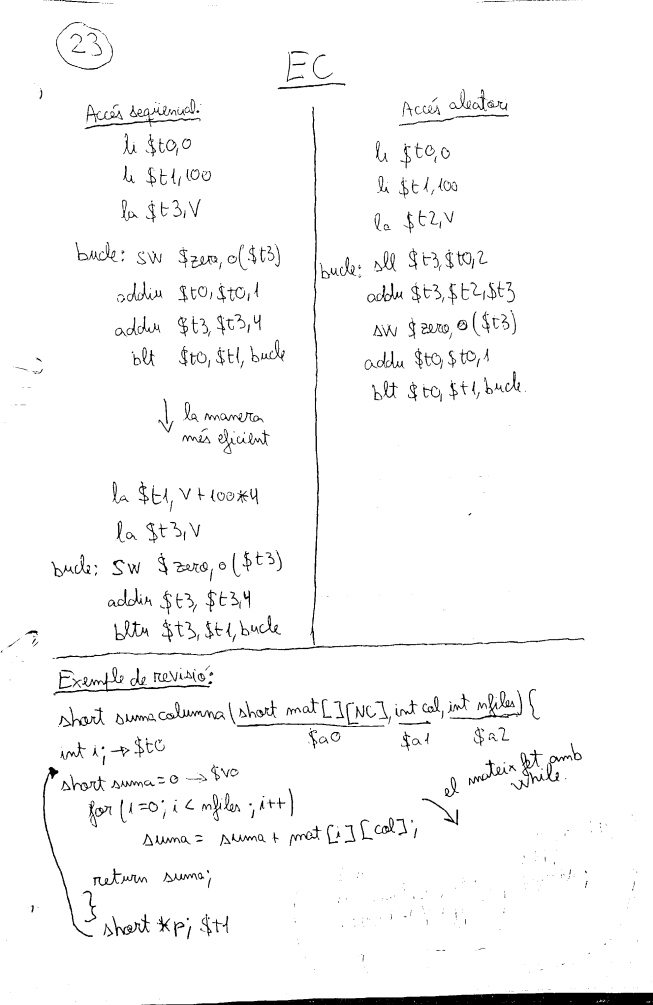 23
EC
Accés seqüencial:
li $t0,0
li $t1,100
la $t3,V
bucle: sw $zero,0($t3)
addiu $t0,$t0,1
addiu $t3,$t3,4
blt $t0,$t1,bucle
↓ la manera
més eficient
la $t1,V+100*4
la $t3,V
bucle: sw $zero,0($t3)
addiu $t3,$t3,4
bltu $t3,$t1,bucle
Accés aleatori
li $t0,0
li $t1,100
la $t2,V
bucle: sll $t3,$t0,2
addu $t3,$t2,$t3
sw $zero,0($t3)
addu $t0,$t0,1
blt $t0,$t1,bucle.
Exemple de revisió:
short sumacolumna(short mat[][NC], int col, int nfiles){
$a0 $a1 $a2
int i; → $t0
short suma=0 → $v0
for (i=0; i<nfiles; i++)
suma = suma + mat[i][col];
el mateix fet amb
while.
return suma;
}
short *p; $t1